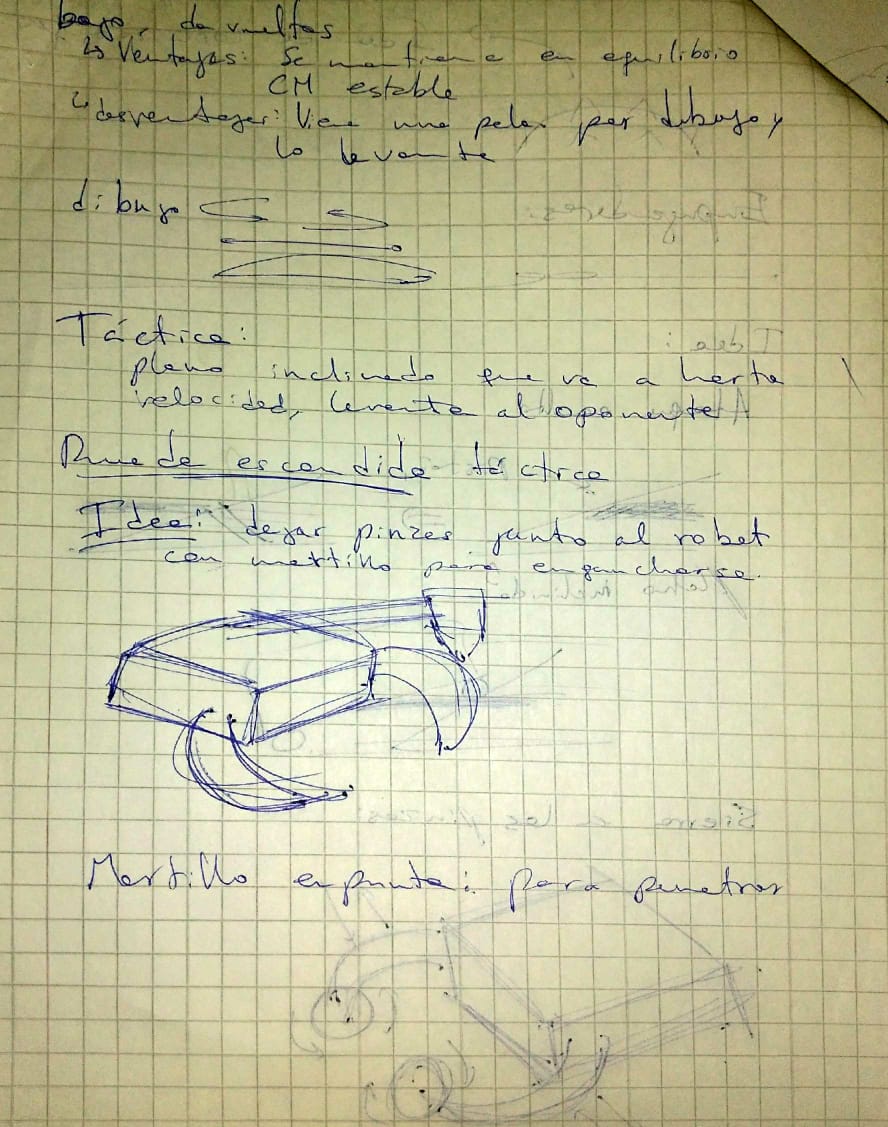 bajo, da vueltas
↳ Ventajas: Se mantiene en equilibrio
CM estable
↳ desventajas: Viene una pala por debajo y
lo levanta
dibujo
Táctica:
plano inclinado que va a harta
velocidad, levanta al oponente
Rueda escondida táctica
Idea: dejar pinzas junto al robot
con martillo para engancharse.
Martillo en punta: para penetrar